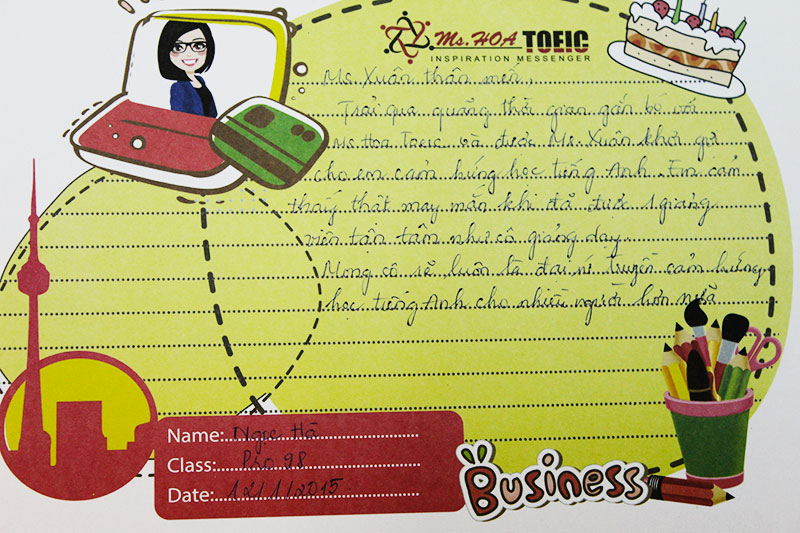 Ms. HOA TOEIC
INSPIRATION MESSENGER
Ms. Xuân thân mến,
Trải qua quãng thời gian gắn bó với
Ms. Hoa Toeic và được Ms. Xuân khơi gợi
cho em cảm hứng học tiếng Anh. Em cảm
thấy thật may mắn khi đã được 1 giảng
viên tận tâm như cô giảng dạy.
Mong cô sẽ luôn là đại sứ truyền cảm hứng
học tiếng Anh cho nhiều người hơn nữa
Name: Ngọc Hà
Class: Pro 98
Date: 12/1/2015
Business